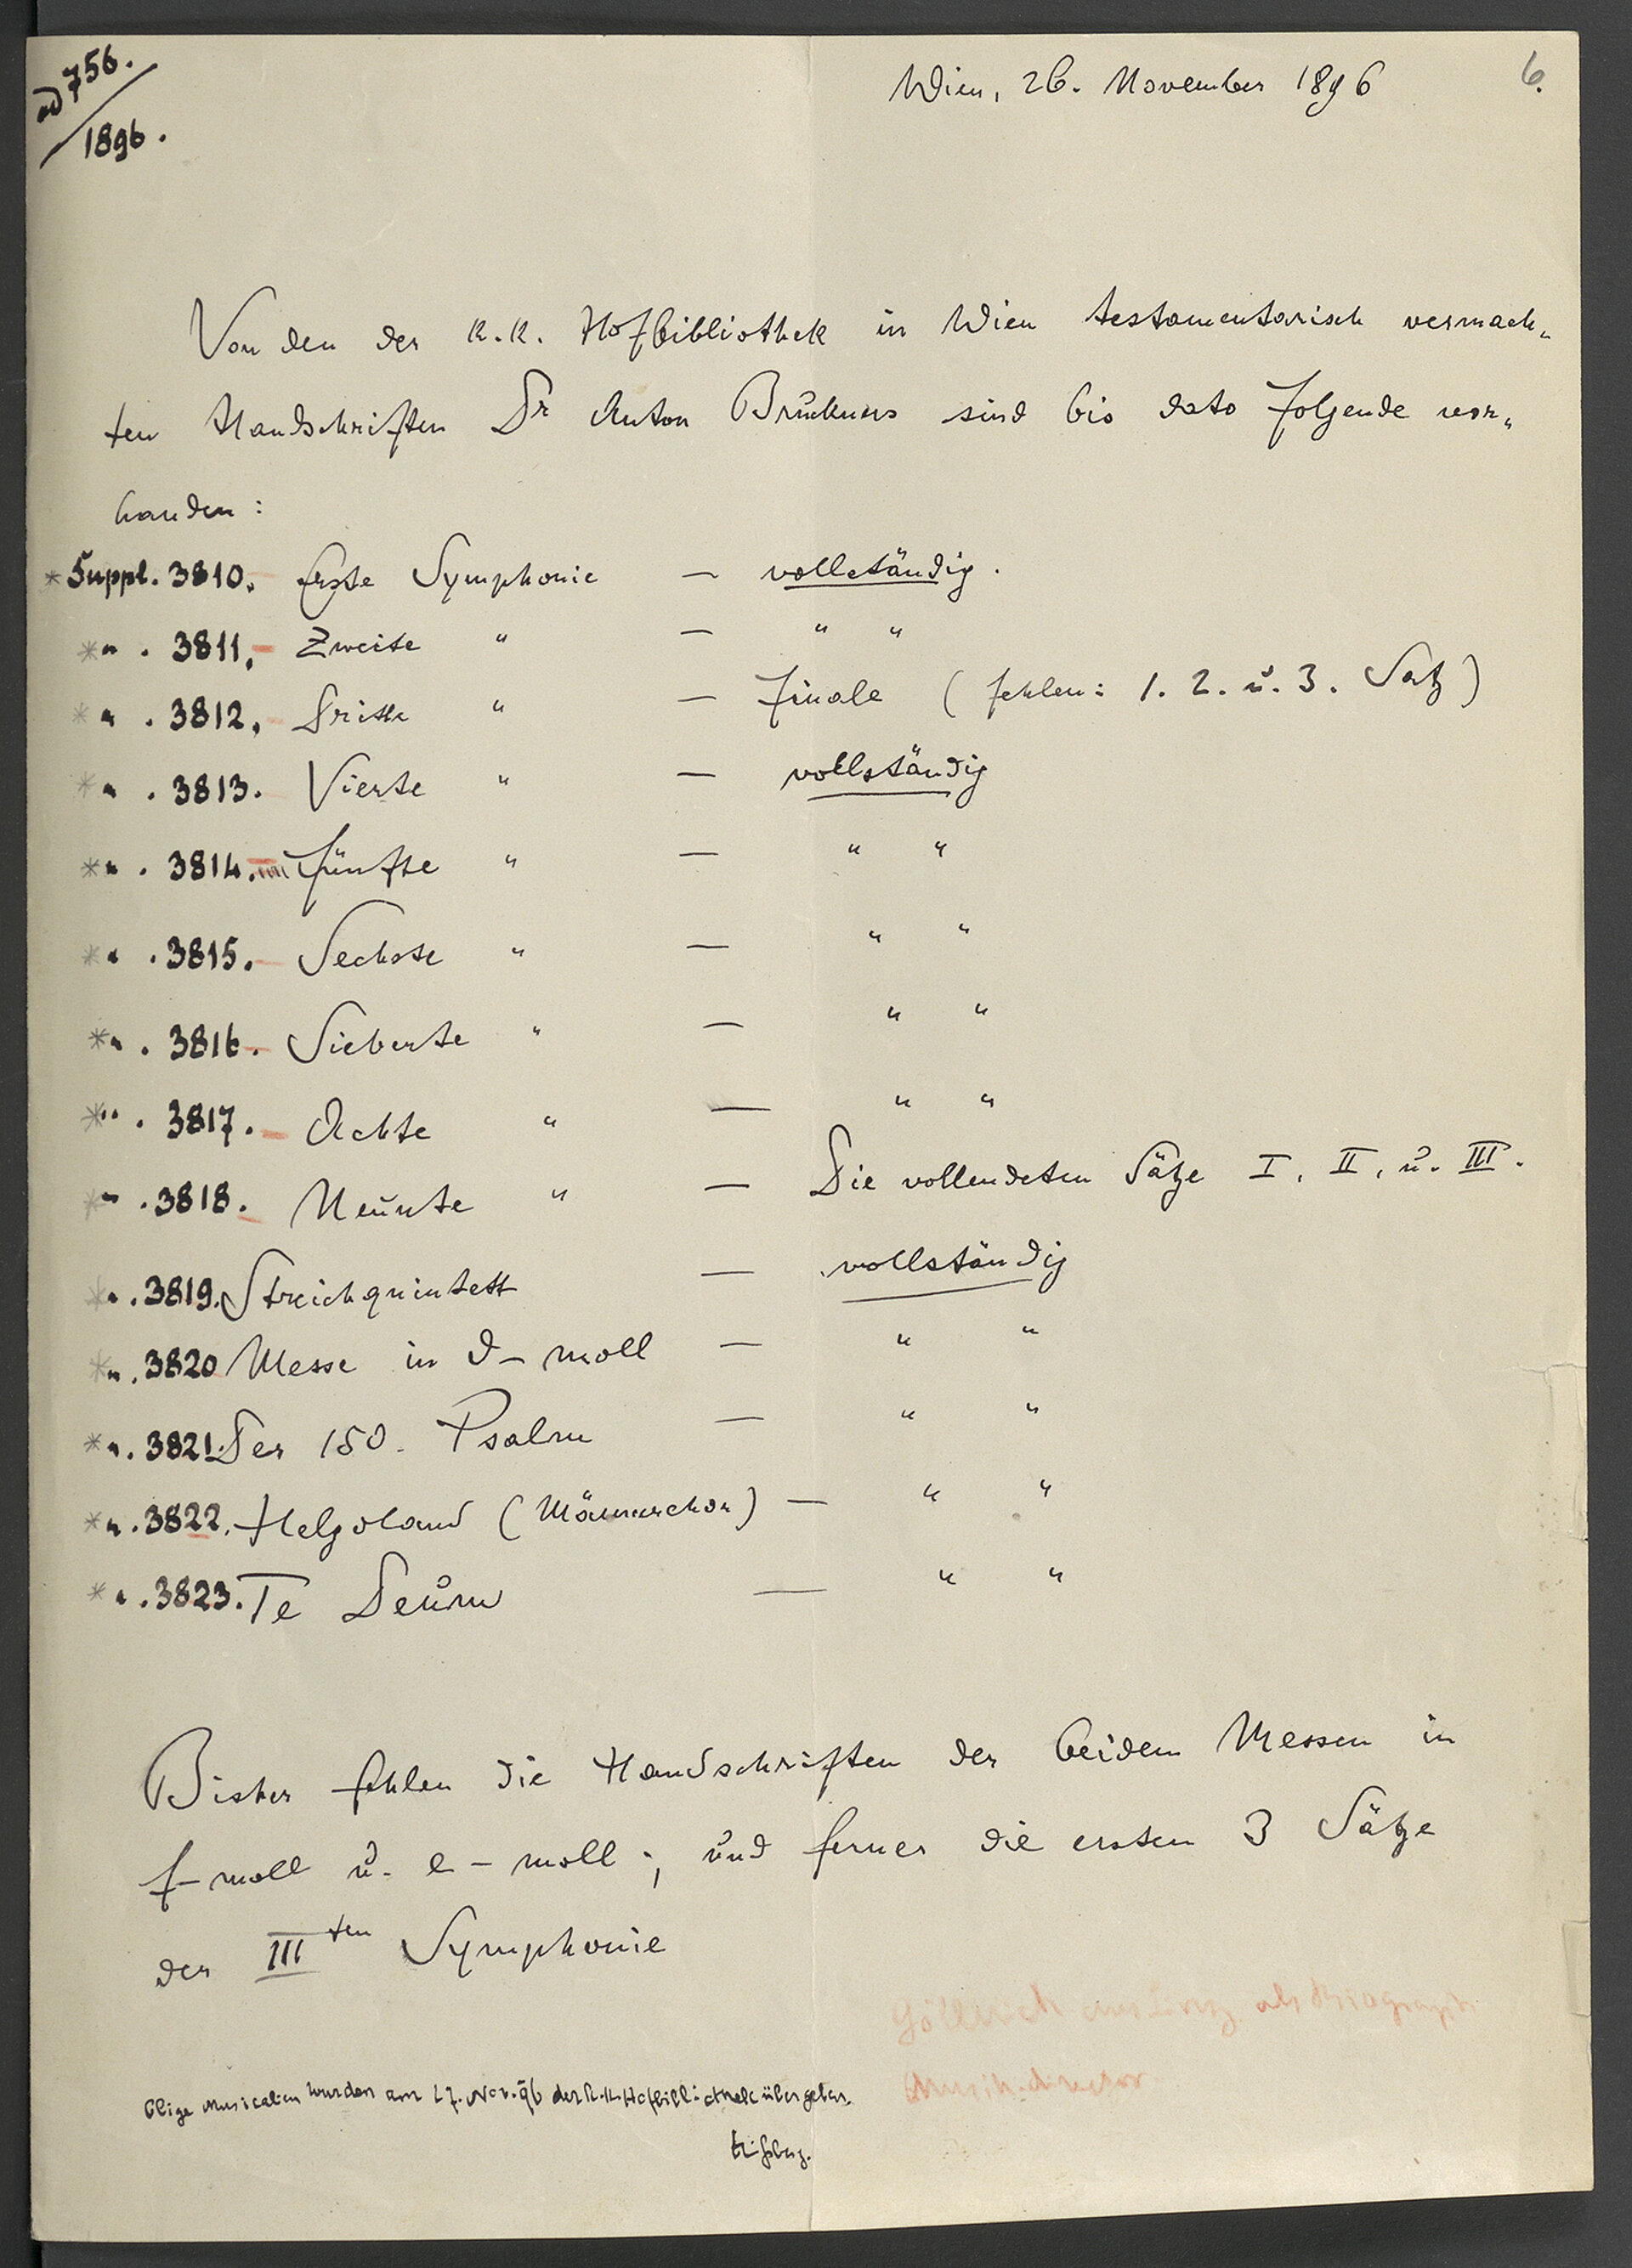 ad 756.
1896.
Wien, 26. November 1896
6.
Von den der k.k. Hofbibliothek in Wien testamentarisch vermach„
ten Handschriften Dr Anton Bruckners sind bis dato folgende vor„
handen:
* Suppl. 3810. Erste Symphonie — vollständig.
* " . 3811. – Zweite " — " "
* " . 3812. – Dritte " — Finale (fehlen: 1. 2. u. 3. Satz)
* " . 3813. Vierte " — vollständig
* " . 3814. – Fünfte " — " "
* " . 3815. – Sechste " — " "
* " . 3816. – Siebente " — " "
* " . 3817. – Achte " — " "
* " . 3818. – Neunte " — Die vollendeten Sätze I, II, u. III.
* " . 3819. Streichquintett — vollständig
* " . 3820 Messe in d-moll — " "
* " . 3821. Der 150. Psalm — " "
* " . 3822. Helgoland (Männerchor) — " "
* " . 3823. Te Deum — " "
Bisher fehlen die Handschriften der beiden Messen in
f-moll u. e-moll; und ferner die ersten 3 Sätze
der IIIten Symphonie
Göllerich aus Linz als Biograph
Musikdirector
Obige Musicalien wurden am 27. Nov. 96 der k.k. Hofbibliothek übergeben.